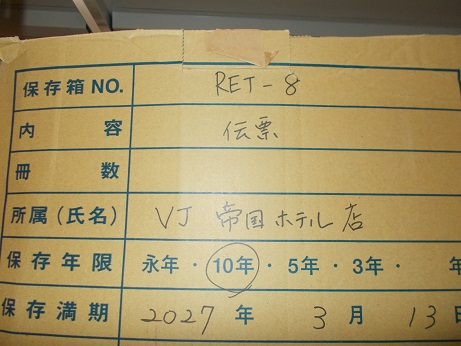 保存箱NO. RET-8
内容 伝票
冊数
所属(氏名) VJ 帝国ホテル店
保存年限 永年・10年・5年・3年・ 年
保存満期 2027年 3月 13日